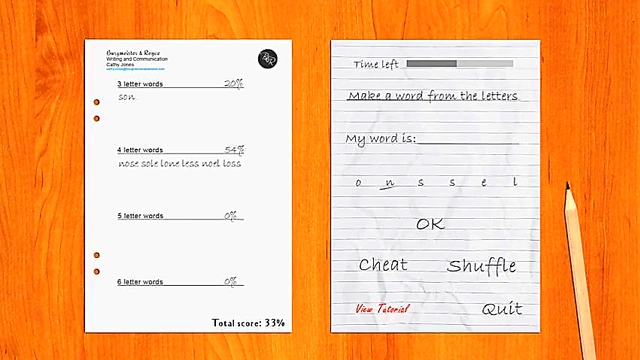 Burgmeister & Royce
Writing and Communication
Cathy Jones
3 letter words 20%
son
4 letter words 54%
nose sole lone less noel loss
5 letter words 0%
6 letter words 0%
Total score: 33%
Time left
Make a word from the letters
My word is:
o n s s e l
OK
Cheat Shuffle
View Tutorial Quit